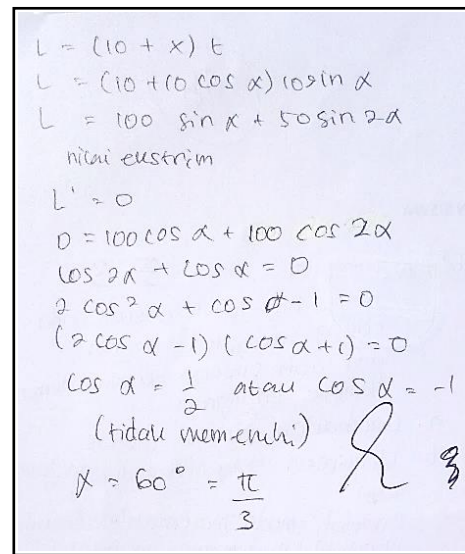 L = (10 + x) t
L = (10 + 10 cos α) 10 sin α
L = 100 sin α + 50 sin 2α
nilai ekstrim
L' = 0
0 = 100 cos α + 100 cos 2α
cos 2α + cos α = 0
2 cos² α + cos α - 1 = 0
(2 cos α - 1) (cos α + 1) = 0
cos α = 1/2 atau cos α = -1
(tidak memenuhi)
α = 60° = π/3